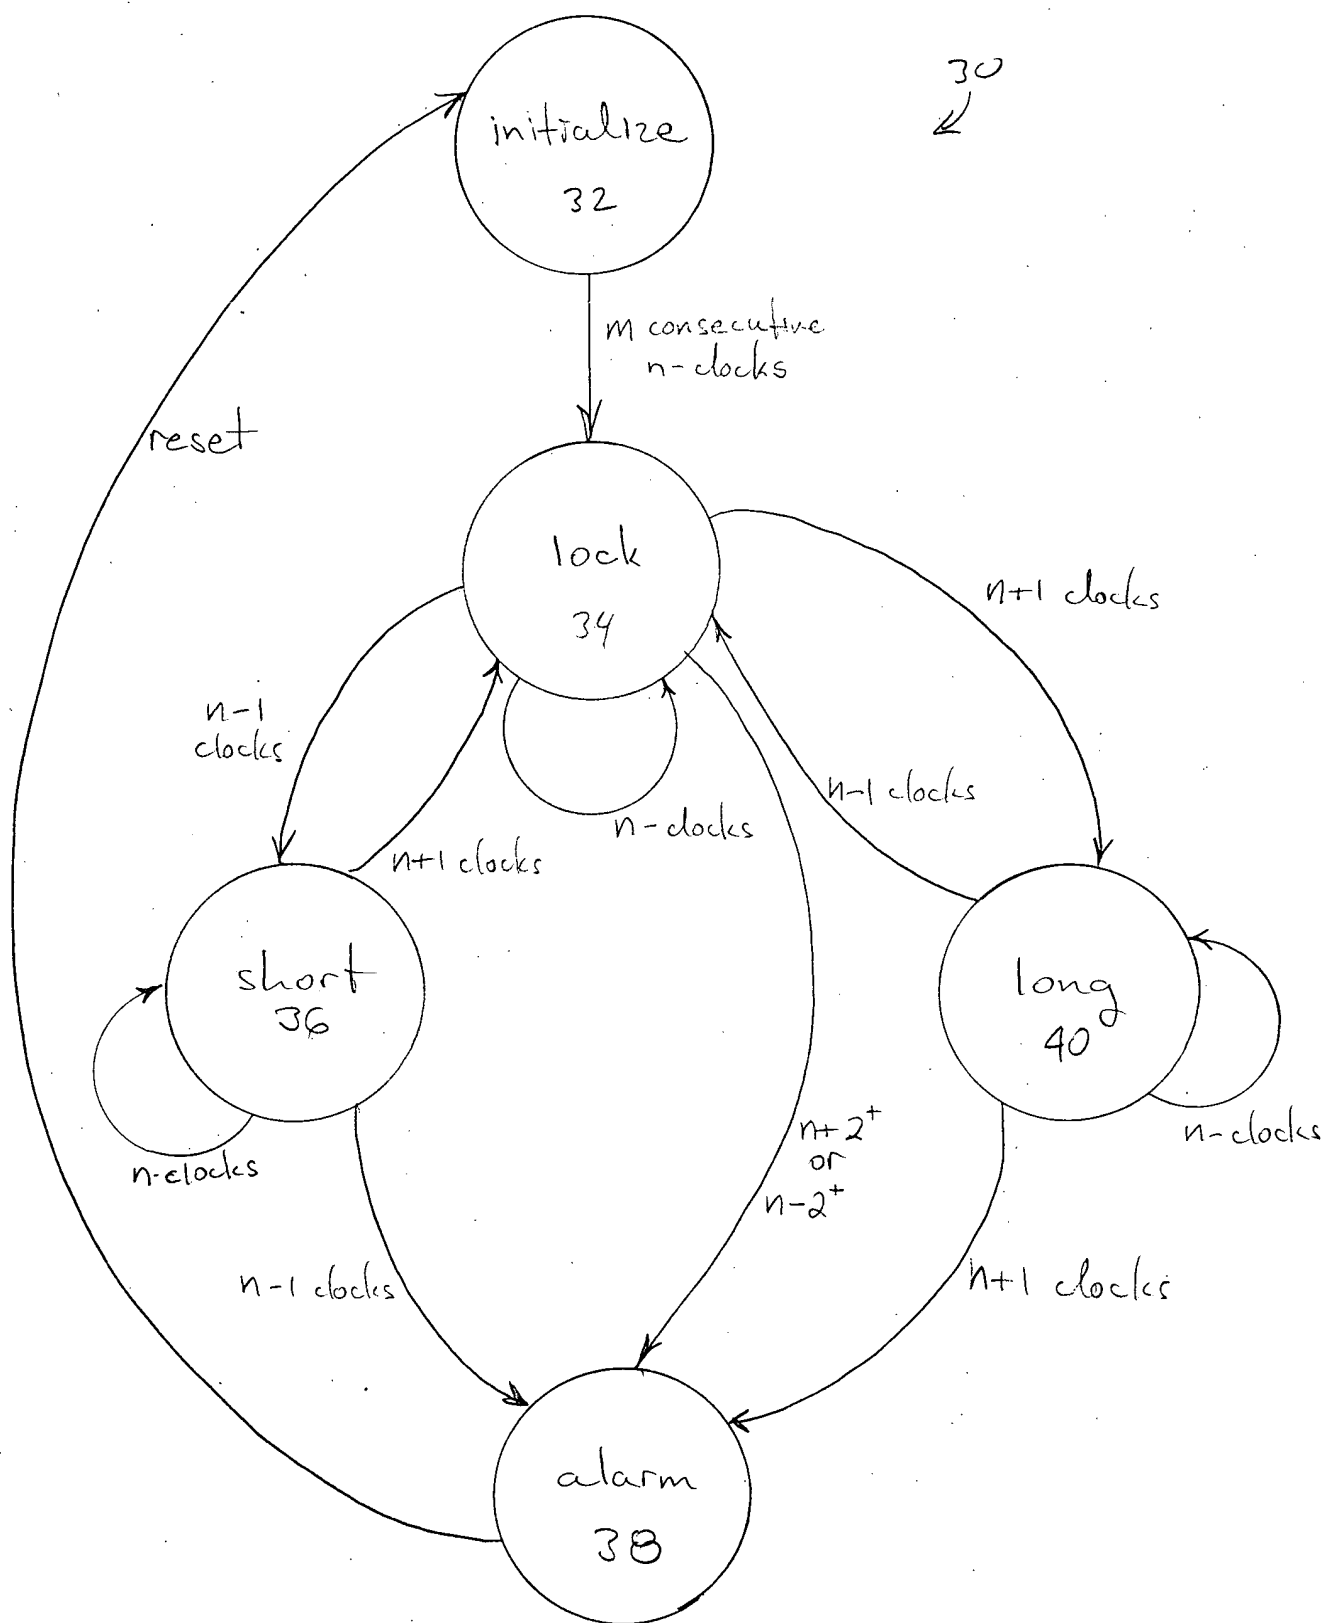 30
initialize
32
m consecutive
n-clocks
reset
lock
34
n+1 clocks
n-1
clocks
n-1 clocks
n-clocks
n+1 clocks
short
36
long
40
n+2⁺
or
n-2⁺
n-clocks
n-clocks
n-1 clocks
n+1 clocks
alarm
38